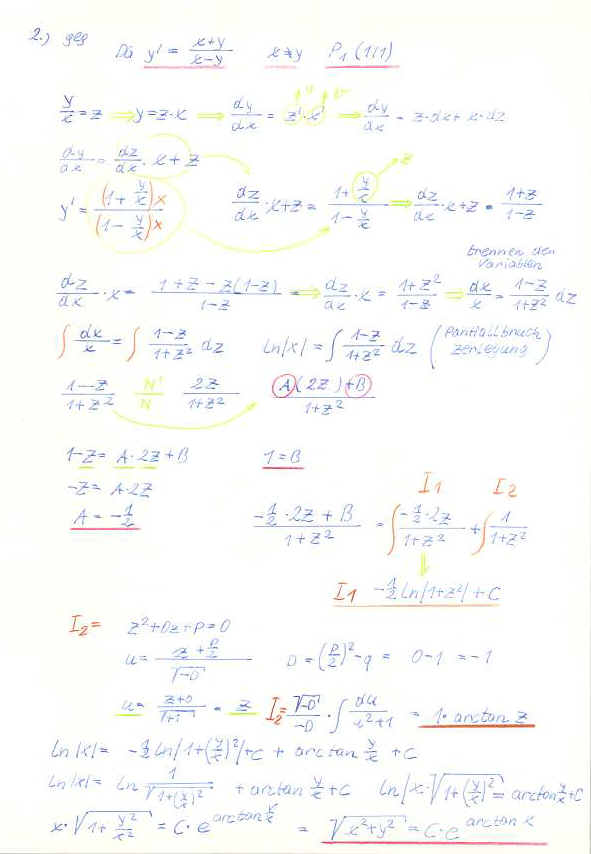 2.) geg
Da y' = (x+y)/(x-y) x≠y P₁ (1|1)
y/x = z ⇒ y = z·x ⇒ dy/dx = z'·x' ⇒ dy/dx = z·dx + x·dz
dy/dx = dz/dx · x + z → z
y' = ((1 + y/x)x)/((1 - y/x)x) dz/dx · x + z = (1 + y/x)/(1 - y/x) ⇒ dz/dx · x + z = (1+z)/(1-z)
trennen der
Variablen
dz/dx · x = (1+z-z(1-z))/(1-z) ⇒ dz/dx · x = (1+z²)/(1-z) ⇒ dx/x = (1-z)/(1+z²) dz
∫ dx/x = ∫ (1-z)/(1+z²) dz ln|x| = ∫ (1-z)/(1+z²) dz (Partiallbruch zerlegung)
(1-z)/(1+z²) N'/N 2z/(1+z²) (A(2z)+B)/(1+z²)
1-z = A·2z + B 1 = B
-z = A·2z I1 I2
A = -1/2 (-1/2·2z + B)/(1+z²) = ∫ (-1/2·2z)/(1+z²) + ∫ 1/(1+z²)
I1 -1/2 ln|1+z²| + C
I2 = z²+0z+p=0
u = (z + p/2)/√-D D = (p/2)² - q = 0-1 = -1
u = (z+0)/√+1 = z I2 = √-D/-D · ∫ du/(u²+1) = 1· arctan z
ln|x| = -1/2 ln|1+(y/x)²| + C + arctan y/x + C
ln|x| = ln 1/√(1+(y/x)²) + arctan y/x + C ln|x·√(1+(y/x)²) = arctan y/x + C
x·√(1 + y²/x²) = C·e^(arctan y/x) = √(x²+y²) = C·e^(arctan x)